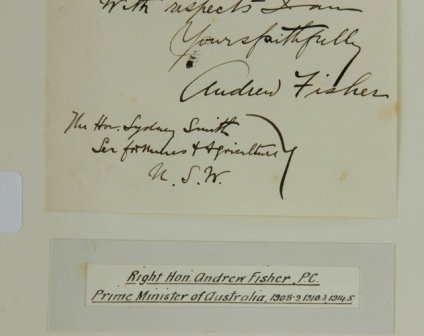 With respects I am
Yours faithfully
Andrew Fisher
The Hon. Sydney Smith
Sec for Mines & Agriculture
N. S. W.
Right Hon. Andrew Fisher, PC.
Prime Minister of Australia, 1908-9, 1910.3, 1914.5